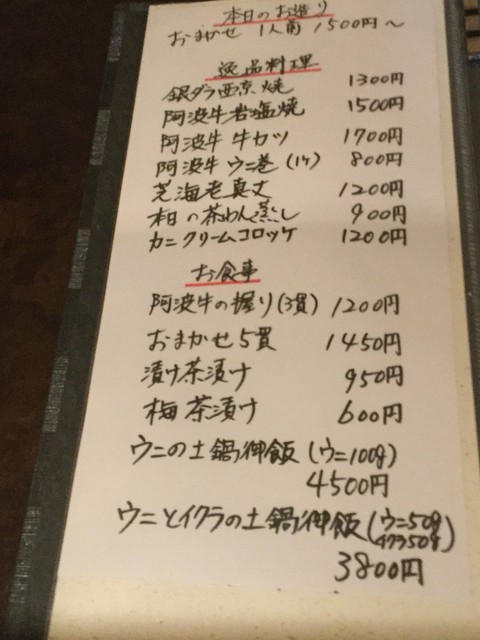 本日のお造り
おまかせ 1人前 1500円〜
逸品料理
銀ダラ西京焼 1300円
阿波牛岩塩焼 1500円
阿波牛 牛カツ 1700円
阿波牛 ウニ巻(1ケ) 800円
芝海老真丈 1200円
本日の茶わん蒸し 900円
カニクリームコロッケ 1200円
お食事
阿波牛の握り(3貫) 1200円
おまかせ5貫 1450円
漬け茶漬け 950円
梅茶漬け 600円
ウニの土鍋御飯(ウニ100g)
4500円
ウニとイクラの土鍋御飯(ウニ50g
イクラ50g)
3800円